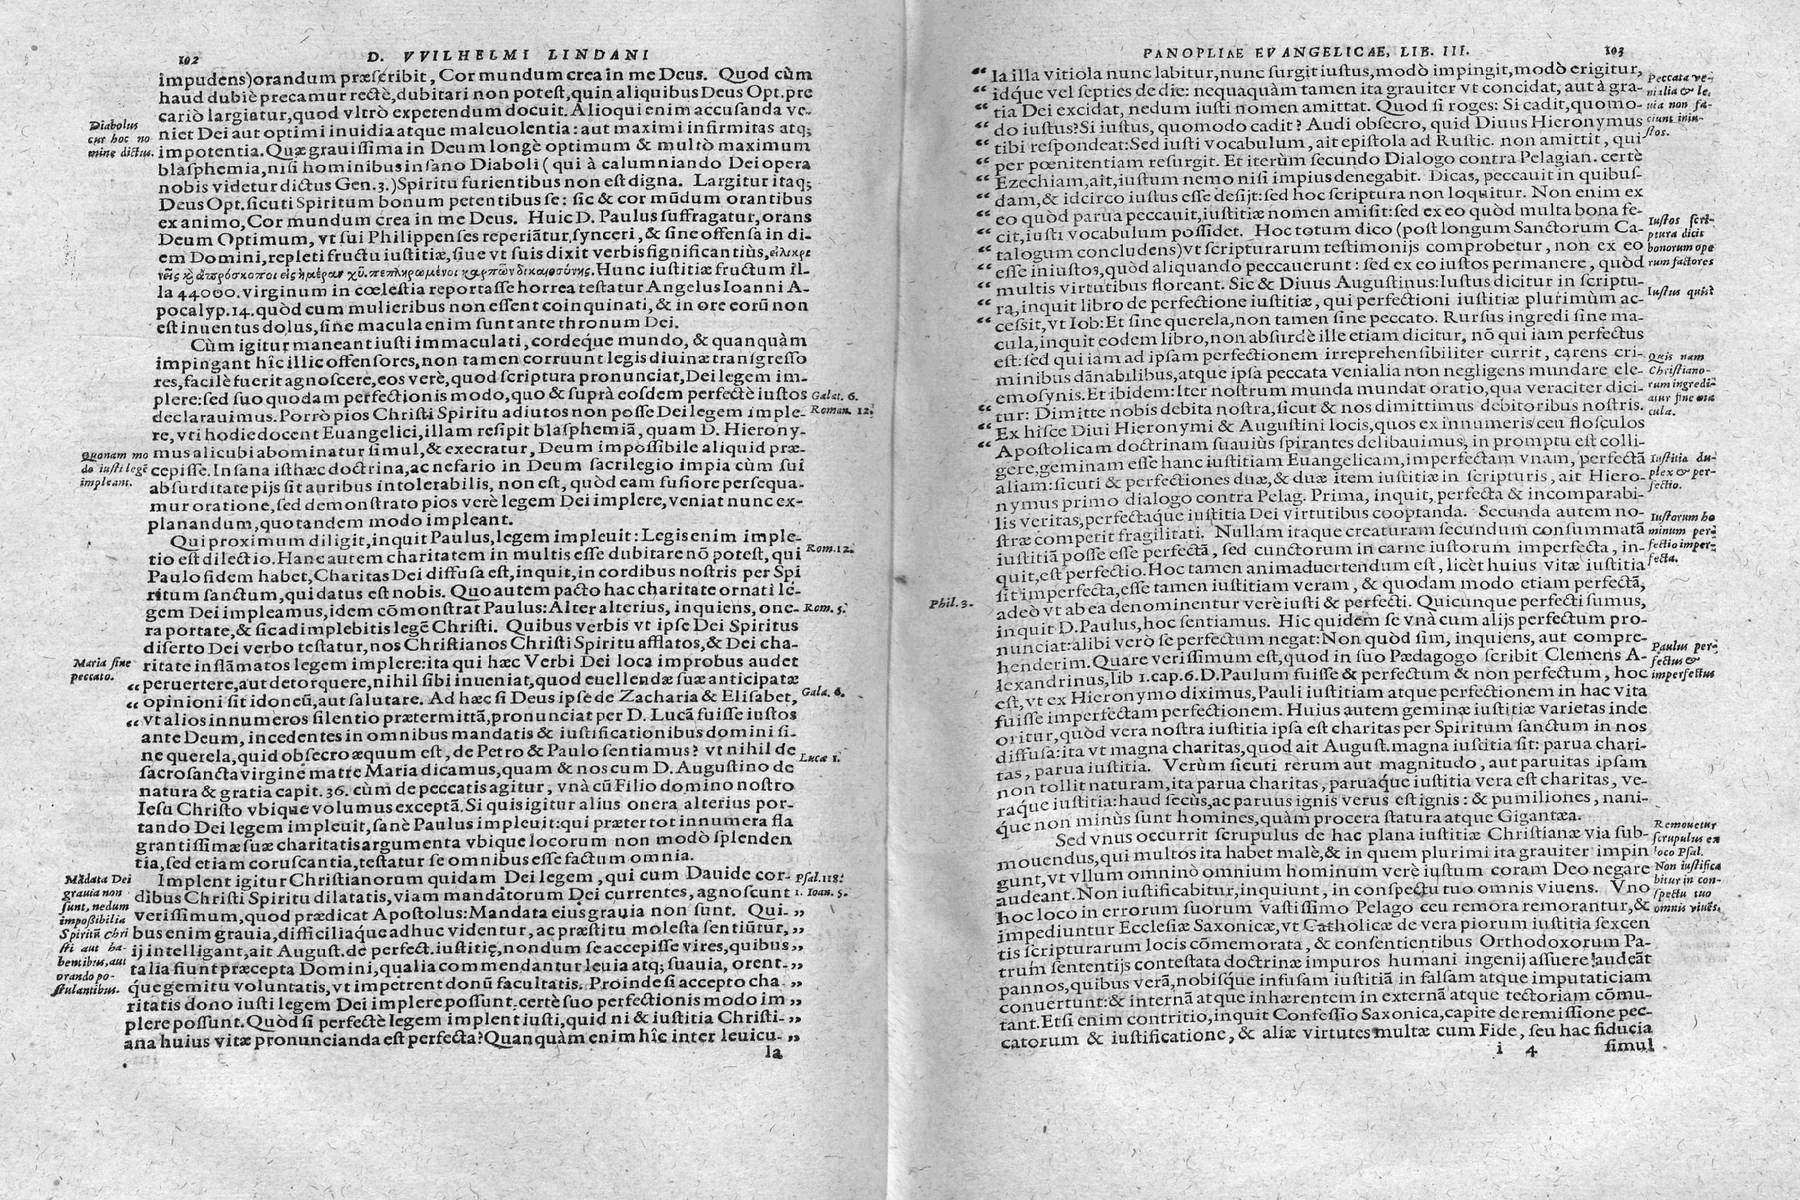 102 D. VVILHELMI LINDANI
impudens)orandum præscribit, Cor mundum crea in me Deus. Quod cùm
haud dubiè precamur rectè, dubitari non potest, quin aliquibus Deus Opt. pre
cariò largiatur, quod vltrò expetendum docuit. Alioqui enim accusanda ve-
niet Dei aut optimi inuidia atque maleuolentia: aut maximi infirmitas atq;
impotentia. Quæ grauissima in Deum longè optimum & multò maximum
blasphemia, nisi hominibus insano Diaboli ( qui à calumniando Dei opera
nobis videtur dictus Gen. 3.) Spiritu furientibus non est digna. Largitur itaq;
Deus Opt. sicuti Spiritum bonum petentibus se: sic & cor mũdum orantibus
ex animo, Cor mundum crea in me Deus. Huic D. Paulus suffragatur, orans
Deum Optimum, vt sui Philippenses reperiãtur, synceri, & sine offensa in di-
em Domini, repleti fructu iustitiæ, siue vt suis dixit verbis significantiùs, εἰλικρι
νεῖς καὶ ἀπρόσκοποι εἰς ἡμέραν χῦ. πεπληρωμένοι καρπῶν δικαιοσύνης. Hunc iustitiæ fructum il-
la 44000. virginum in cœlestia reportasse horrea testatur Angelus Ioanni A-
pocalyp. 14. quòd cum mulieribus non essent coinquinati, & in ore eorũ non
est inuentus dolus, sine macula enim sunt ante thronum Dei.
Cùm igitur maneant iusti immaculati, cordeque mundo, & quanquàm
impingant hîc illic offensores, non tamen corruunt legis diuinæ transgresso
res, facilè fuerit agnoscere, eos verè, quod scriptura pronunciat, Dei legem im-
plere: sed suo quodam perfectionis modo, quo & suprà eosdem perfectè iustos
declarauimus. Porrò pios Christi Spiritu adiutos non posse Dei legem imple-
re, vti hodie docent Euangelici, illam resipit blasphemiã, quam D. Hierony-
mus alicubi abominatur simul, & execratur, Deum impossibile aliquid præ-
cepisse. Insana isthæc doctrina, ac nefario in Deum sacrilegio impia cùm sui
absurditate pijs sit auribus intolerabilis, non est, quòd eam fusiore persequa-
mur oratione, sed demonstrato pios verè legem Dei implere, veniat nunc ex-
planandum, quo tandem modo impleant.
Qui proximum diligit, inquit Paulus, legem impleuit: Legis enim imple-
tio est dilectio. Hanc autem charitatem in multis esse dubitare nõ potest, qui
Paulo fidem habet, Charitas Dei diffusa est, inquit, in cordibus nostris per Spi
ritum sanctum, qui datus est nobis. Quo autem pacto hac charitate ornati le-
gem Dei impleamus, idem cõmonstrat Paulus: Alter alterius, inquiens, one-
ra portate, & sic adimplebitis legẽ Christi. Quibus verbis vt ipse Dei Spiritus
diserto Dei verbo testatur, nos Christianos Christi Spiritu afflatos, & Dei cha-
ritate inflãmatos legem implere: ita qui hæc Verbi Dei loca improbus audet
peruertere, aut detorquere, nihil sibi inueniat, quod euellendæ suæ anticipatæ
opinioni sit idoneũ, aut salutare. Ad hæc si Deus ipse de Zacharia & Elisabet,
vt alios innumeros silentio prætermittã, pronunciat per D. Lucã fuisse iustos
ante Deum, incedentes in omnibus mandatis & iustificationibus domini si-
ne querela, quid obsecro æquum est, de Petro & Paulo sentiamus? vt nihil de
sacrosancta virgine matre Maria dicamus, quam & nos cum D. Augustino de
natura & gratia capit. 36. cùm de peccatis agitur, vnà cũ Filio domino nostro
Iesu Christo vbique volumus exceptã. Si quis igitur alius onera alterius por-
tando Dei legem impleuit, sanè Paulus impleuit: qui præter tot innumera fla
grantissimæ suæ charitatis argumenta vbique locorum non modò splenden
tia, sed etiam coruscantia, testatur se omnibus esse factum omnia.
Implent igitur Christianorum quidam Dei legem, qui cum Dauide cor-
dibus Christi Spiritu dilatatis, viam mandatorum Dei currentes, agnoscunt
verissimum, quod prædicat Apostolus: Mandata eius grauia non sunt. Qui-
bus enim grauia, difficiliaque adhuc videntur, ac præstitu molesta sentiũtur,
ij intelligant, ait August. de perfect. iustitię, nondum se accepisse vires, quibus
talia fiunt præcepta Domini, qualia commendantur leuia atq; suauia, orent-
q́ue gemitu voluntatis, vt impetrent donũ facultatis. Proinde si accepto cha
ritatis dono iusti legem Dei implere possunt, certè suo perfectionis modo im
plere possunt. Quòd si perfectè legem implent iusti, quid ni & iustitia Christi-
ana huius vitæ pronuncianda est perfecta? Quanquàm enim hîc inter leuicu-
la
Diabolus
cur hoc no
mine dictus.
Quonam mo
do iusti legẽ
impleant.
Maria sine
peccato.
Mãdata Dei
grauia non
sunt, nedum
impoßibilia
Spiritũ Chri
sti aut ha-
bentibus, aut
orando po-
stulantibus.
Galat. 6.
Roman. 12.
Rom. 12.
Rom. 5.
Gala. 6.
Lucæ 1.
Psal. 118.
1. Ioan. 5.
PANOPLIAE EVANGELICAE, LIB. III. 103
la illa vitiola nunc labitur, nunc surgit iustus, modò impingit, modò erigitur,
idque vel septies de die: nequaquàm tamen ita grauiter vt concidat, aut à gra-
tia Dei excidat, nedum iusti nomen amittat. Quod si roges: Si cadit, quomo-
do iustus? Si iustus, quomodo cadit? Audi obsecro, quid Diuus Hieronymus
tibi respondeat: Sed iusti vocabulum, ait epistola ad Rustic. non amittit, qui
per pœnitentiam resurgit. Et iterùm secundo Dialogo contra Pelagian. certè
Ezechiam, aît, iustum nemo nisi impius denegabit. Dicas, peccauit in quibus-
dam, & idcirco iustus esse desijt: sed hoc scriptura non loquitur. Non enim ex
eo quòd parua peccauit, iustitiæ nomen amisit: sed ex eo quòd multa bona fe-
cit, iusti vocabulum possidet. Hoc totum dico (post longum Sanctorum Ca-
talogum concludens) vt scripturarum testimonijs comprobetur, non ex eo
esse iniustos, quòd aliquando peccauerunt: sed ex eo iustos permanere, quòd
multis virtutibus floreant. Sic & Diuus Augustinus: Iustus dicitur in scriptu-
ra, inquit libro de perfectione iustitiæ, qui perfectioni iustitiæ plurimùm ac-
cessit, vt Iob: Et sine querela, non tamen sine peccato. Rursus ingredi sine ma-
cula, inquit eodem libro, non absurdè ille etiam dicitur, nõ qui iam perfectus
est: sed qui iam ad ipsam perfectionem irreprehensibiliter currit, carens cri-
minibus dãnabilibus, atque ipsa peccata venialia non negligens mundare ele-
emosynis. Et ibidem: Iter nostrum munda mundat oratio, qua veraciter dici-
tur: Dimitte nobis debita nostra, sicut & nos dimittimus debitoribus nostris.
Ex hisce Diui Hieronymi & Augustini locis, quos ex innumeris ceu flosculos
Apostolicam doctrinam suauiùs spirantes delibauimus, in promptu est colli-
gere, geminam esse hanc iustitiam Euangelicam, imperfectam vnam, perfectã
aliam: sicuti & perfectiones duæ, & duæ item iustitiæ in scripturis, ait Hiero-
nymus primo dialogo contra Pelag. Prima, inquit, perfecta & incomparabi-
lis veritas, perfectaque iustitia Dei virtutibus cooptanda. Secunda autem no-
stræ competit fragilitati. Nullam itaque creaturam secundum consummatã
iustitiã posse esse perfectã, sed cunctorum in carne iustorum imperfecta, in-
quit, est perfectio. Hoc tamen animaduertendum est, licèt huius vitæ iustitia
sit imperfecta, esse tamen iustitiam veram, & quodam modo etiam perfectã,
adeò vt ab ea denominentur verè iusti & perfecti. Quicunque perfecti sumus,
inquit D. Paulus, hoc sentiamus. Hic quidem se vnà cum alijs perfectum pro-
nunciat: alibi verò se perfectum negat: Non quòd sim, inquiens, aut compre-
henderim. Quare verissimum est, quod in suo Pædagogo scribit Clemens A-
lexandrinus, lib 1. cap. 6. D. Paulum fuisse & perfectum & non perfectum, hoc
est, vt ex Hieronymo diximus, Pauli iustitiam atque perfectionem in hac vita
fuisse imperfectam perfectionem. Huius autem geminæ iustitiæ varietas inde
oritur, quòd vera nostra iustitia ipsa est charitas per Spiritum sanctum in nos
diffusa: ita vt magna charitas, quod ait August. magna iustitia sit: parua chari-
tas, parua iustitia. Verùm sicuti rerum aut magnitudo, aut paruitas ipsam
non tollit naturam, ita parua charitas, paruaque iustitia vera est charitas, ve-
raque iustitia: haud secùs, ac paruus ignis verus est ignis: & pumiliones, nani-
q́ue non minùs sunt homines, quàm procera statura atque Gigantæa.
Sed vnus occurrit scrupulus de hac plana iustitiæ Christianæ via sub-
mouendus, qui multos ita habet malè, & in quem plurimi ita grauiter impin
gunt, vt vllum omninò omnium hominum verè iustum coram Deo negare
audeant. Non iustificabitur, inquiunt, in conspectu tuo omnis viuens. Vno
hoc loco in errorum suorum vastissimo Pelago ceu remora remorantur, &
impediuntur Ecclesiæ Saxonicæ, vt Catholicæ de vera piorum iustitia sexcen
tis scripturarum locis cõmemorata, & consentientibus Orthodoxorum Pa-
trum sententijs contestata doctrinæ impuros humani ingenij assuere audeãt
pannos, quibus verã, nobisq́ue infusam iustitiã in falsam atque imputaticiam
conuertunt: & internã atque inhærentem in externã atque tectoriam cõmu-
tant. Etsi enim contritio, inquit Confessio Saxonica, capite de remissione pec-
catorum & iustificatione, & aliæ virtutes multæ cum Fide, seu hac fiducia
i 4 simul
Phil. 3.
Peccata ve-
nialia & le.
uia non fa-
ciunt iniu-
stos.
Iustos scri-
ptura dicit
bonorum ope
rum factores
Iustus quis
Quis nam
Christiano-
rum ingredi-
atur sine ma
cula.
Iustitia du-
plex & per-
fectio.
Iustorum ho
minum per-
fectio imper-
fecta.
Paulus per-
fectus &
imperfectus
Remouetur
scrupulus ex
loco Psal.
Non iustifica
bitur in con-
spectu tuo
omnis viuẽs.